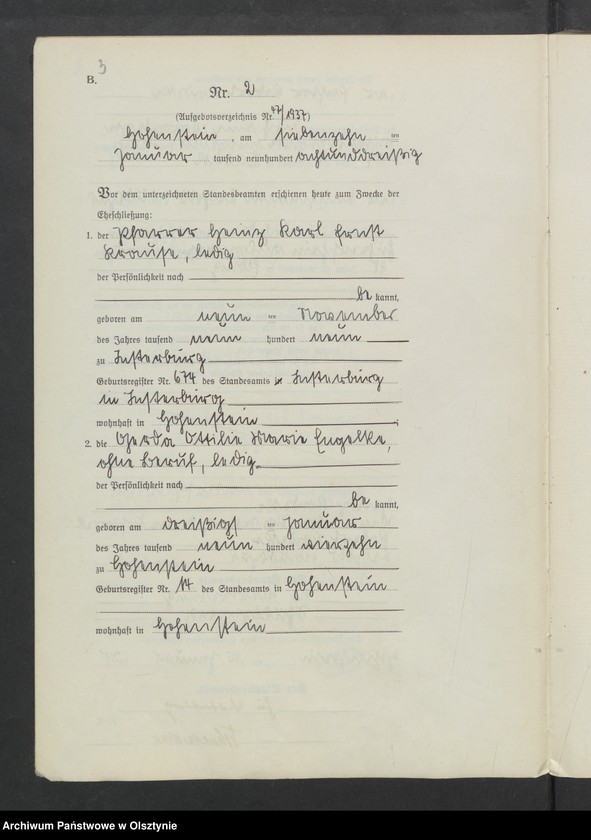 3
B.
Nr. 2
(Aufgebotsverzeichnis Nr. 47/1937)
Hohenstein, am siebenzehn ten
Januar tausend neunhundert achtunddreißig
Vor dem unterzeichneten Standesbeamten erschienen heute zum Zwecke der
Eheschließung:
1. der Pfarrer Heinz Karl Ernst
Krause, ledig
der Persönlichkeit nach
be kannt,
geboren am neun ten November
des Jahres tausend neun hundert neun
zu Insterburg
Geburtsregister Nr. 674 des Standesamts Insterburg
in Insterburg
wohnhaft in Hohenstein ;
2. die Gerda Ottilie Marie Engelke,
ohne Beruf, ledig
der Persönlichkeit nach
be kannt,
geboren am dreißigst ten Januar
des Jahres tausend neun hundert vierzehn
zu Hohenstein
Geburtsregister Nr. 14 des Standesamts in Hohenstein
wohnhaft in Hohenstein
Archiwum Państwowe w Olsztynie